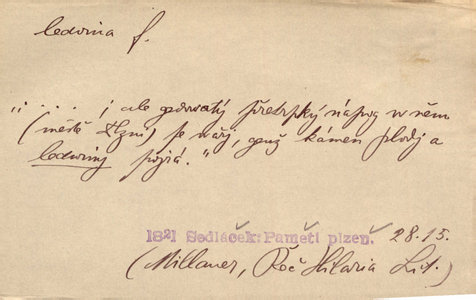 ledvina f.
„ . . . i ale gedowatý přetrpký nápog w něm
(městě Plzni) se wařj, genž kámen plodj a
ledwiny pogjá."
1821 Sedláček: Paměti plzeň. 28.15.
(Millauer, Řeč Hilaria Lit.)